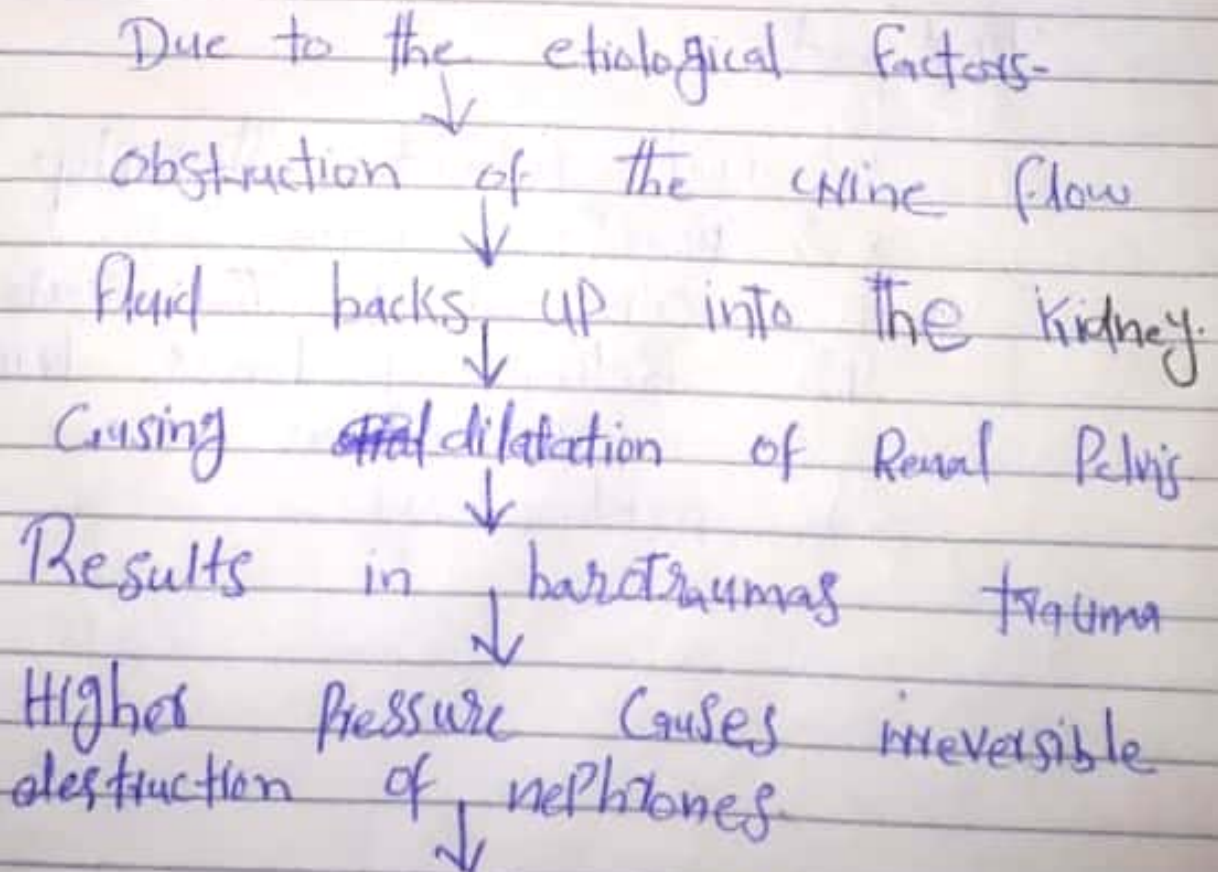 Due to the etiological factors-
↓
obstruction of the urine flow
↓
fluid backs up into the kidney.
↓
Causing dilatation of Renal Pelvis
↓
Results in barotraumas trauma
↓
Higher Pressure Causes irreversible
destruction of nephrones.
↓